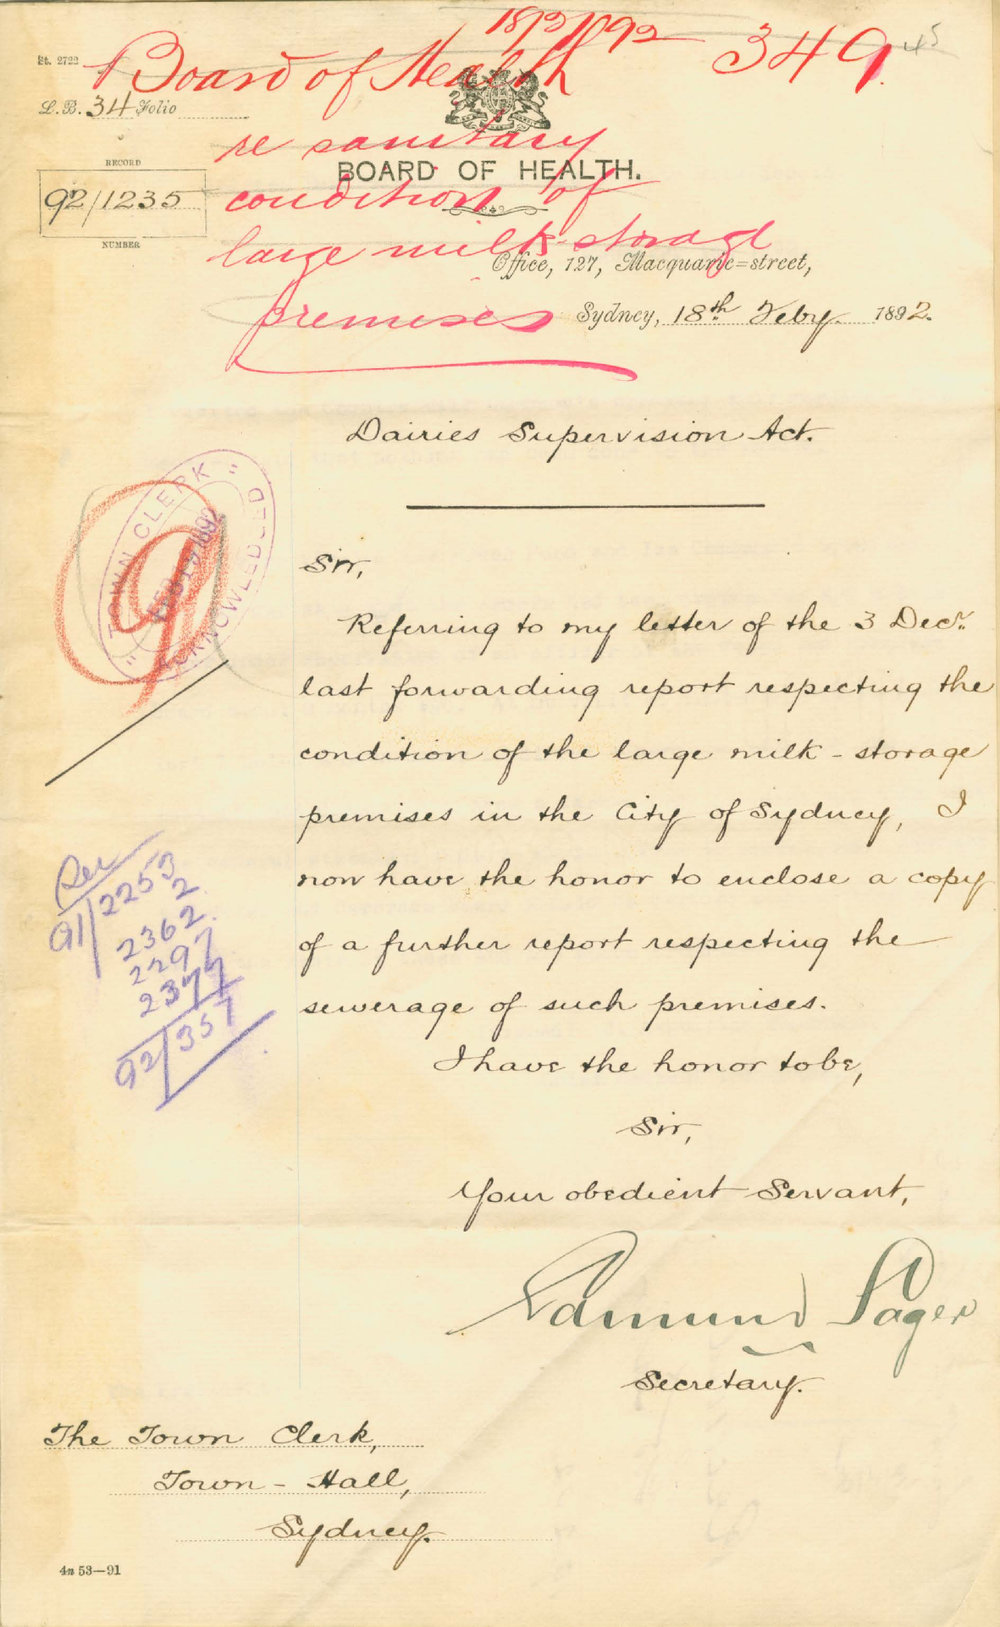 1892/092 349 45
St. 2722
Board of Health
L.B. 34 Folio
re sanitary
RECORD
BOARD OF HEALTH.
92/1235
condition of
NUMBER
large milk-storage
Office, 127, Macquarie=street,
premises
Sydney, 18th Feby. 1892.
Dairies Supervision Act.
"TOWN CLERK"
ACKNOWLEDGED
9
Sir,
Referring to my letter of the 3 Decr.
last forwarding report respecting the
condition of the large milk-storage
premises in the City of Sydney, I
now have the honor to enclose a copy
of a further report respecting the
sewerage of such premises.
91/2253
2
2362
2297
2377
92/357
I have the honor to be,
Sir,
Your obedient Servant,
Edmund Sager
Secretary.
The Town Clerk,
Town-Hall,
Sydney.
4n 53—91